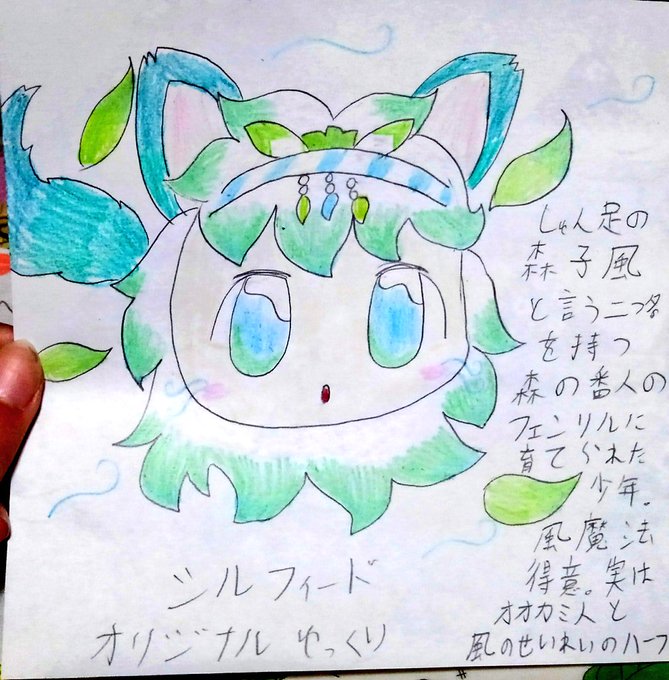 しゅん足の
森子風
と言う二つ名
を持つ
森の番人の
フェンリルに
育てられた
少年。
風魔法
得意。実は
オオカミ人と
風のせいれいのハーフ
シルフィード
オリジナルゆっくり